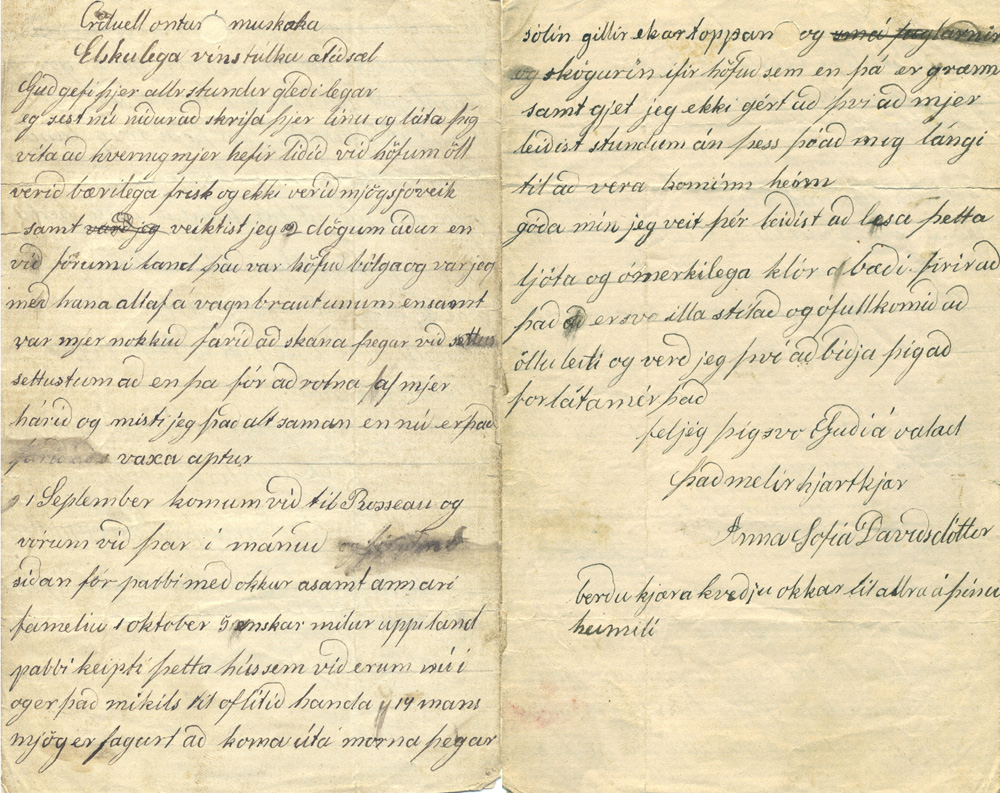 Crituell ontari muskoka
Elskulega vinstulka ætið sæl
Gud gefi þjer allr stundir gledilegar
eg sest nú nidur ad skrifa þjer linu og láta þig
vita ad hvernig mjer hefir lidid vid höfum öll
verid bærilega frisk og ekki verid mjög sjóveik
samt vard jeg veiktist jeg 2 dögum ádur en
vid fórum i land þad var höfud bólga og var jeg
med hana altaf á vagnbrautunum en samt
var mjer nokkud farid ad skána þegar vid settus
settustum ad en þa fór ad rotna af mjer
hárid og misti jeg þad alt saman en nú er þad
farid ad vaxa aptur
1 September komum vid til Rosseau og
vorum vid þar i mánud
sidan fór pabbi med okkur asamt annari
fameliu 1 oktober 5 enskar milur upp i land
pabbi keipti þetta hús sem vid erum nú i
og er þad mikils til of litid handa 14 mans
mjög er fagurt ad koma út á morna þegar
sólin gillir ekartoppan og smá fuglarnir
og skógurin ifir höfud sem en þá er grænn
samt gjet jeg ekki gért ad þvi ad mjer
leidist stundum án þess þó ad mig lángi
til ad vera kominn heim
góda mín jeg veit þér leidist ad lesa þetta
ljóta og ómerkilega klór bædi firir ad
þad er svo illa stilad og ófullkomid ad
öllu leiti og verd jeg því ad bidja þig ad
forláta mér þad
fel jeg þig svo Gudi á vald
þad melir hjartkjær
Anna Sofiá Davidsdótter
berdu kjæra kvedju okkar til allra á þinu
heimili